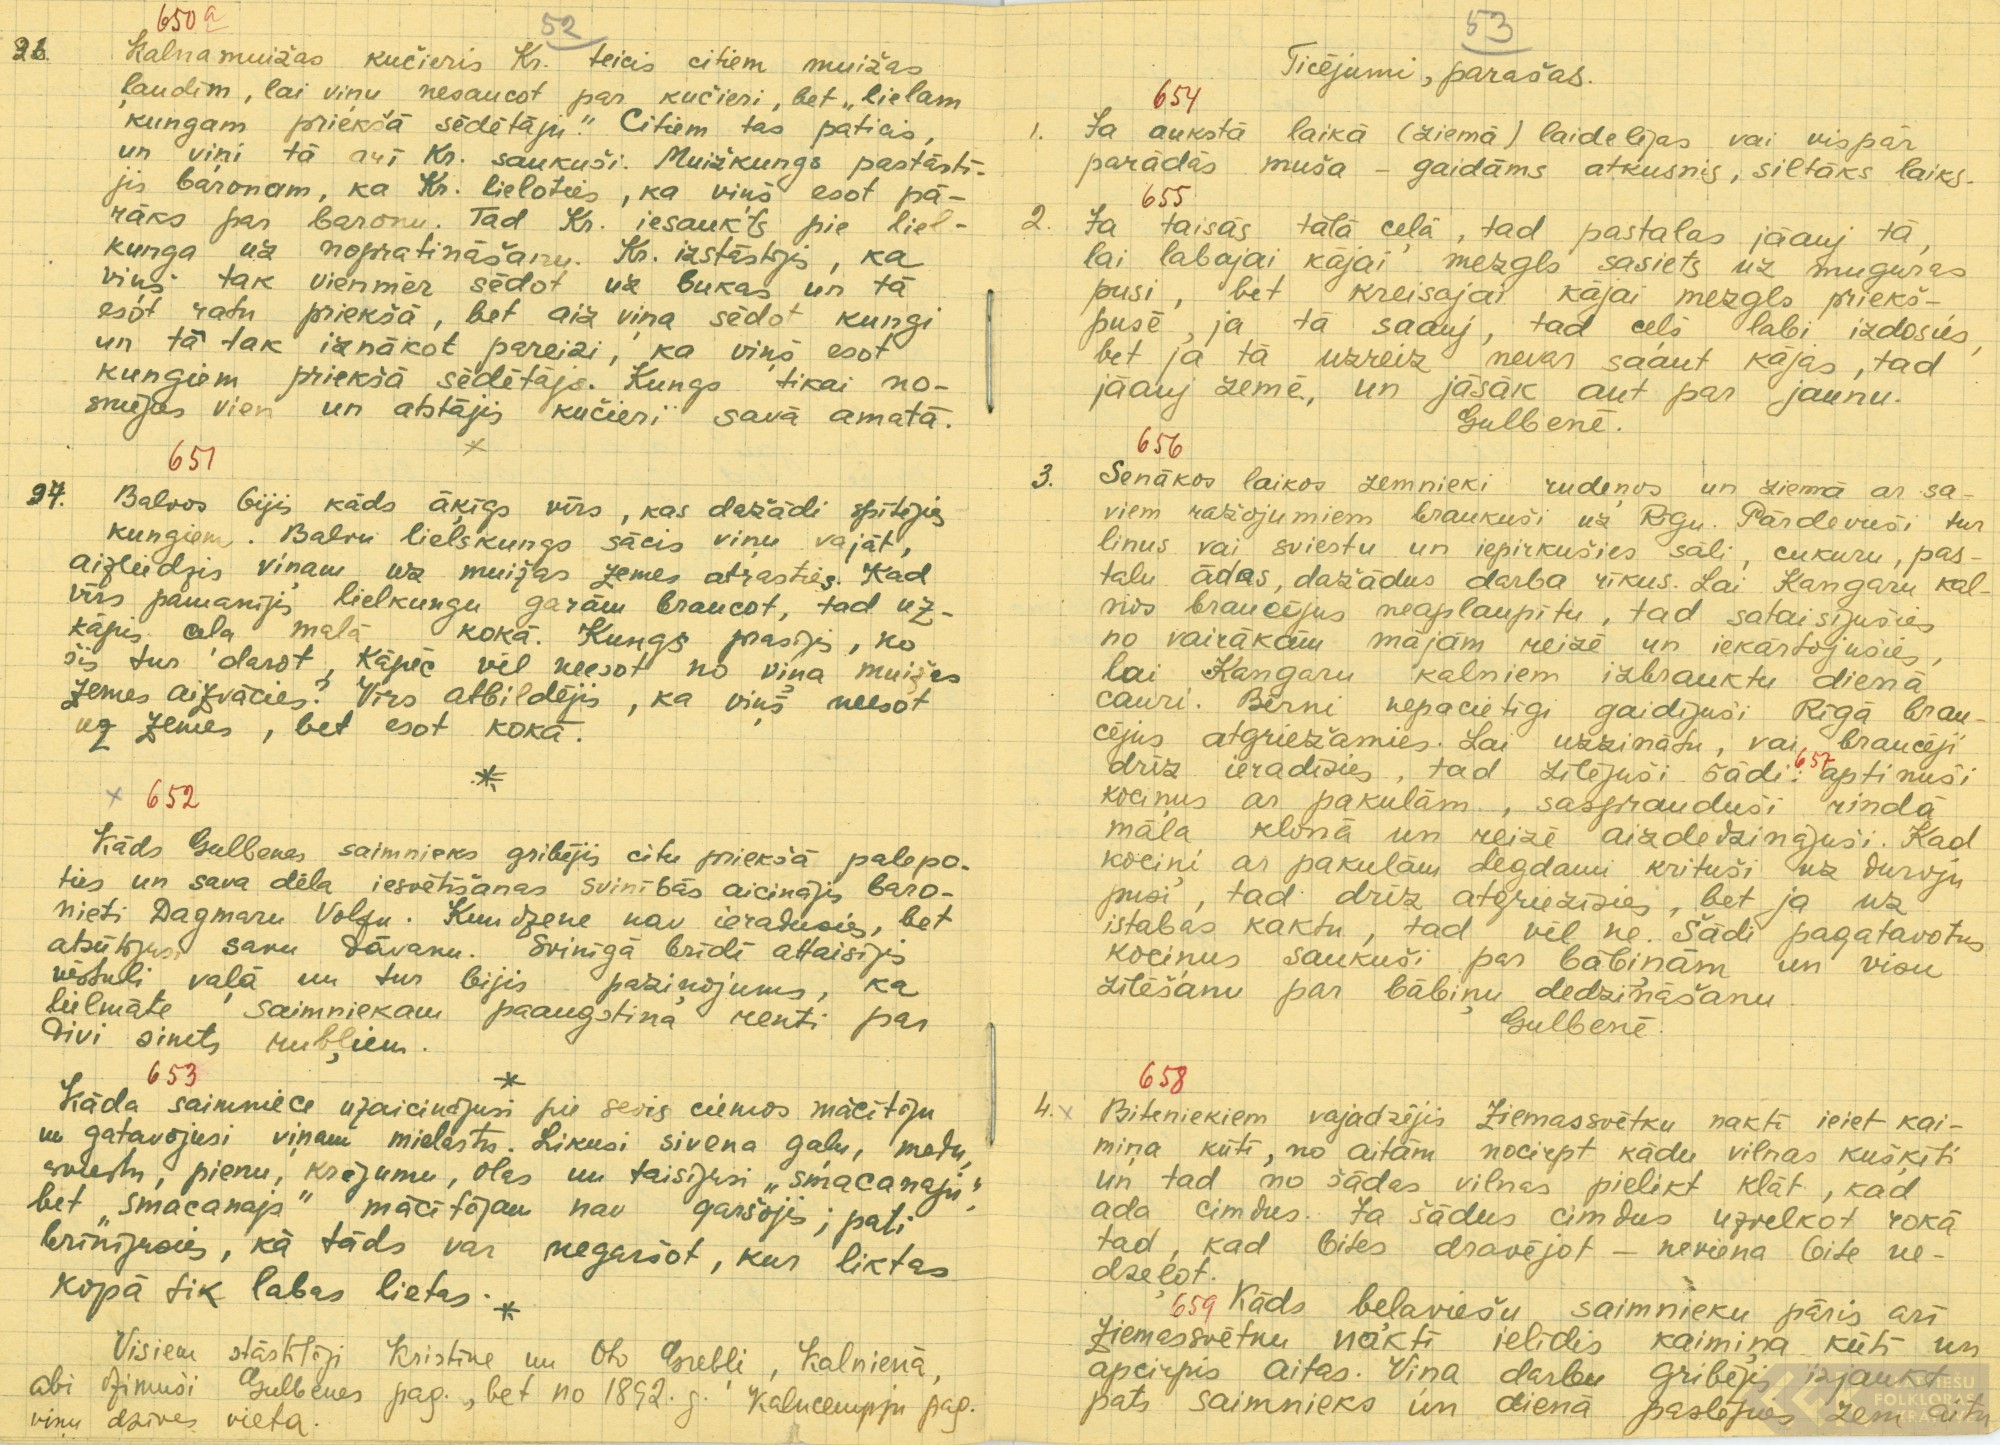 650a
52
96. Kalnamuižas kučieris Kr. teicis citiem muižas
ļaudīm, lai viņu nesaucot par kučieri, bet „lielam
kungam priekšā sēdētāju." Citiem tas paticis,
un viņi tā arī Kr. saukuši. Muižkungs pastāstī-
jis baronam, ka Kr. lieloties, ka viņš esot pā-
rāks par baronu. Tad Kr. iesaukts pie liel-
kunga uz nopratināšanu. Kr. izstāstījis, ka
viņš tak vienmēr sēdot uz bukas un tā
esot ratu priekšā, bet aiz viņa sēdot kungi
un tā tak iznākot pareizi, ka viņš esot
kungiem priekšā sēdētājs. Kungs tikai no-
smējies vien un atstājis kučieri savā amatā.
651
97. Balvos bijis kāds āķīgs vīrs, kas dažādi spītējis
kungiem. Balvu lielskungs sācis viņu vajāt,
aizliedzis viņam uz muižas zemes atrasties. Kad
vīrs pamanījis lielkungu garām braucot, tad uz-
kāpis ceļa malā kokā. Kungs prasījis, ko
šis tur darot, kāpēc vēl neesot no viņa muižas
zemes aizvācies? Vīrs atbildējis, ka viņš neesot
uz zemes, bet esot kokā.
*
x 652
Kāds Gulbenes saimnieks gribējis citu priekšā palepo-
ties un sava dēla iesvētīšanas svinībās aicinājis baro-
nieti Dagmaru Volfu. Kundzene nav ieradusies, bet
atsūtījusi savu dāvanu. Svinīgā brīdī attaisījis
vēstuli vaļā un tur bijis paziņojums, ka
lielmāte saimniekam paaugstina renti par
divi simts rubļiem.
*
653
Kāda saimniece uzaicinājusi pie sevis ciemos mācītāju
un gatavojusi viņam mielastu. Likusi sivēna gaļu, medu,
sviestu, pienu, krējumu, olas un taisījusi „smacanaju",
bet „smacanajs" mācītājam nav garšojis; pati
brīnījusies, kā tāds var negaršot, kur liktas
kopā tik labas lietas.
*
Visiem stāstītāji Kristīne un Oto Grebli, Kalnienā,
abi dzimuši Gulbenes pag., bet no 1892. g. Kalncempju pag.
viņu dzīves vieta.
53
Ticējumi, parašas.
654
1. Ja aukstā laikā (ziemā) laidelējas vai vispār
parādās muša – gaidāms atkusnis, siltāks laiks.
655
2. Ja taisās tālā ceļā, tad pastalas jāauj tā,
lai labajai kājai mezgls sasiets uz muguras
pusi, bet kreisajai kājai mezgls priekš-
pusē, ja tā saauj, tad ceļš labi izdosies,
bet ja tā uzreiz nevar saaut kājas, tad
jāauj zemē, un jāsāk aut par jaunu.
Gulbenē.
656
3. Senākos laikos zemnieki rudeņos un ziemā ar sa-
viem ražojumiem braukuši uz Rīgu. Pārdevuši tur
linus vai sviestu un iepirkušies sāli, cukuru, pas-
talu ādas, dažādus darba rīkus. Lai Kangaru kal-
nos braucējus neaplaupītu, tad sataisījušies
no vairākām mājām reizē un iekārtojušies,
lai Kangaru kalniem izbrauktu dienā
cauri. Bērni nepacietīgi gaidījuši Rīgā brau-
cējus atgriežamies. Lai uzzinātu, vai braucēji
drīz ieradīsies, tad zīlējuši šādi: 657 aptinuši
kociņus ar pakulām, sasprauduši rindā
māla klonā un reizē aizdedzinājuši. Kad
kociņi ar pakulām degdami krituši uz durvju
pusi, tad drīz atgriezīsies, bet ja uz
istabas kaktu, tad vēl ne. Šādi pagatavotus
kociņus saukuši par bābiņām un visu
zīlēšanu par bābiņu dedzināšanu
Gulbenē.
658
4. x Biteniekiem vajadzējis Ziemassvētku naktī ieiet kai-
miņa kūtī, no aitām nocirpt kādu vilnas kušķīti
un tad no šādas vilnas pielikt klāt, kad
ada cimdus. Ja šādus cimdus uzvelkot rokā
tad, kad bites dravējot – neviena bite ne-
dzeļot.
659 Kāds belaviešu saimnieku pāris arī
Ziemassvētku naktī ielīdis kaimiņa kūtī un
apcirpis aitas. Viņa darbu gribējis izjaukt
pats saimnieks un dienā paslēpies zem aitu
LATVIEŠU
FOLKLORAS
KRĀTUVE